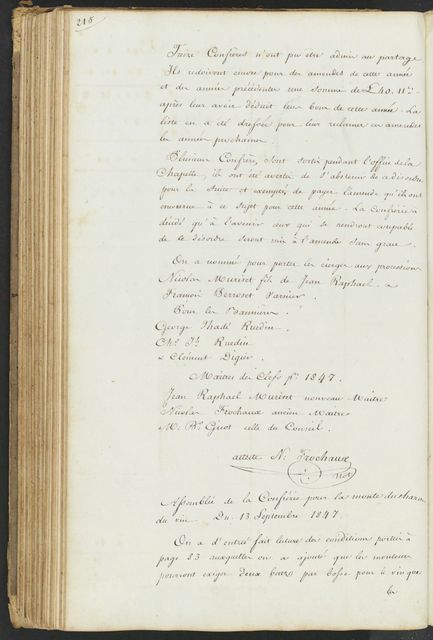 218
Treize Confrères n'ont pu etre admis au partage
Ils redoivent encore pour des amendes de cette année
et des années précédentes une somme de £40. 11s
après leur avoir déduit leur bon de cette année. La
liste en a été dressée pour leur reclamer ces amendes
les années prochaines.
Plusieurs Confrères, sont sortis pendant l'office de la
Chapelle, ils ont été avertis de s'abstenir de ce désordre
pour la suite et exemptés de payer l'amende qu'ils ont
encourue à ce sujet pour cette année. La Confrérie a
décidé qu'à l'avenir ceux qui se rendront coupables
de ce désordre seront mis à l'amende sans grace.
On a nommé pour porter les cierges aux processions
Nicolas Muriset fils de Jean Raphael. &
François Berroset Varnier.
Pour les Bannieres.
George Thadé Ruedin.
Chs Jh Ruedin
& Clément Digier.
Maitres des Clefs pr 1847.
Jean Raphael Muriset nouveau Maitre
Nicolas Frochaux ancien Maitre
M. Bt Gicot celle du Conseil.
atteste N. Frochaux
not
Assemblée de la Confrérie pour la monte du charroi
du vin. Du 13 Septembre 1847.
On a d'entrée fait lecture des conditions portées à
page 23 auxquelles on a ajouté que les monteurs
pourront exiger deux batz par bosse pour le vin que
les